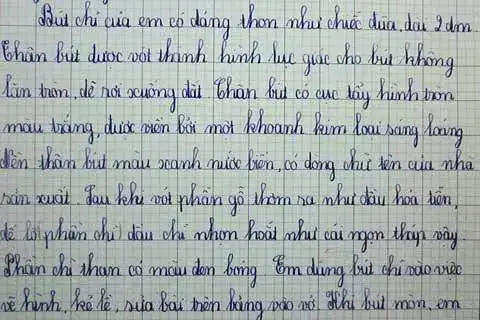 Bút chì của em có dáng thon như chiếc đũa, dài 2 dm.
Thân bút được vót thành hình lục giác cho bút không
lăn tròn, dễ rơi xuống đất. Thân bút có cục tẩy hình tròn
màu trắng, được viền bởi một khoanh kim loại sáng loáng
đến thân bút màu xanh nước biển, có dòng chữ tên của nhà
sản xuất. Sau khi vót phần gỗ thơm ra như dầu hỏa tiễn,
để lộ phần chì) đầu chì nhọn hoắt như cái ngọn tháp vậy.
Phần chì than có màu đen bóng. Em dùng bút chì vào việc
vẽ hình, kẻ lề, sửa bài trên bảng vào vở. Khi bút mòn, em